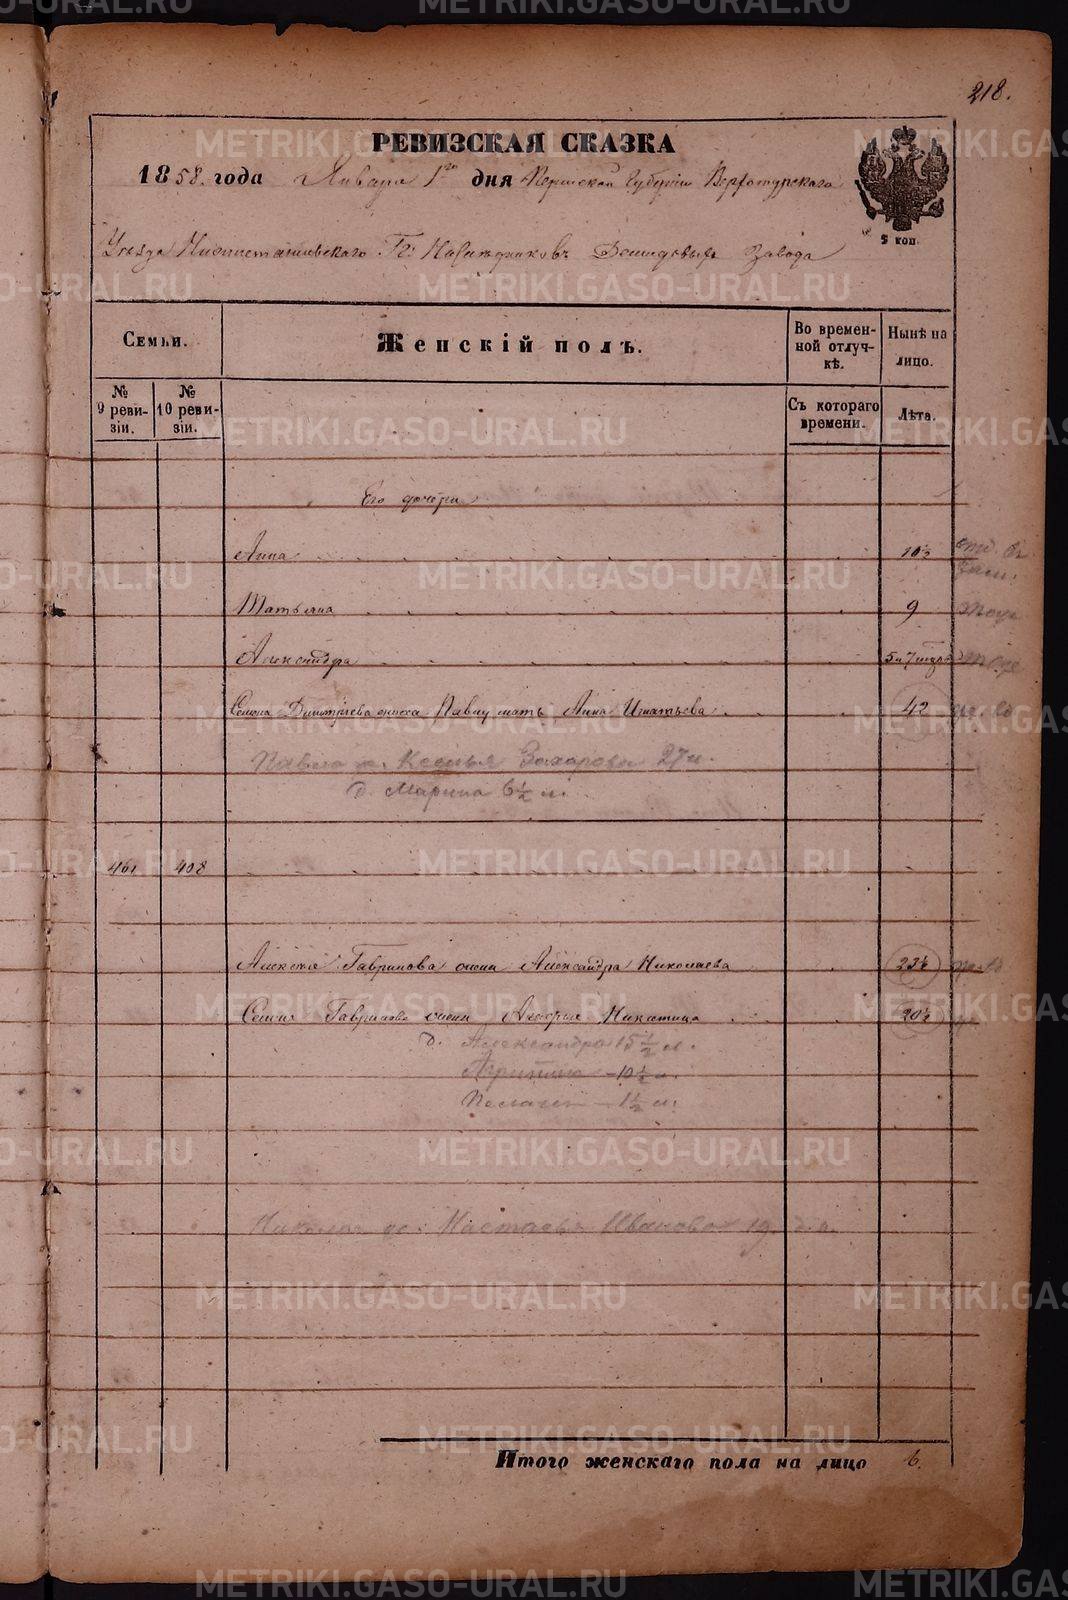 218.
РЕВИЗСКАЯ СКАЗКА
1858. года Января 1го дня Пермской Губернiи Верхотурскаго
5 коп.
Уѣзда Нижнетагильскаго Гг: Наслѣдниковъ Демидовыхъ Завода
Семьи.
Женскій полъ.
Во временной отлучкѣ.
Нынѣ на лицо.
№ 9 ревизіи.
№ 10 ревизіи.
Съ котораго времени.
Лѣта.
Его дочери
Анна 10½
Татьяна 9 тоже
Александра 5 и 7 тоже
Семена Дмитріева Павлу мать Анна Игнатьева 42
Павла ж. Ксенья Захарова 27 л.
д. Марина 6½ л.
461 408
Алексѣя Гаврилова жена Александра Николаева 23½
Семена Гаврилова жена Никитина 20½
д. Александра 15½ л.
10½ л.
Пелагея - 1½ л.
Николая Настасья Иванова 19
Итого женскаго пола на лицо 6.
METRIKI.GASO-URAL.RU